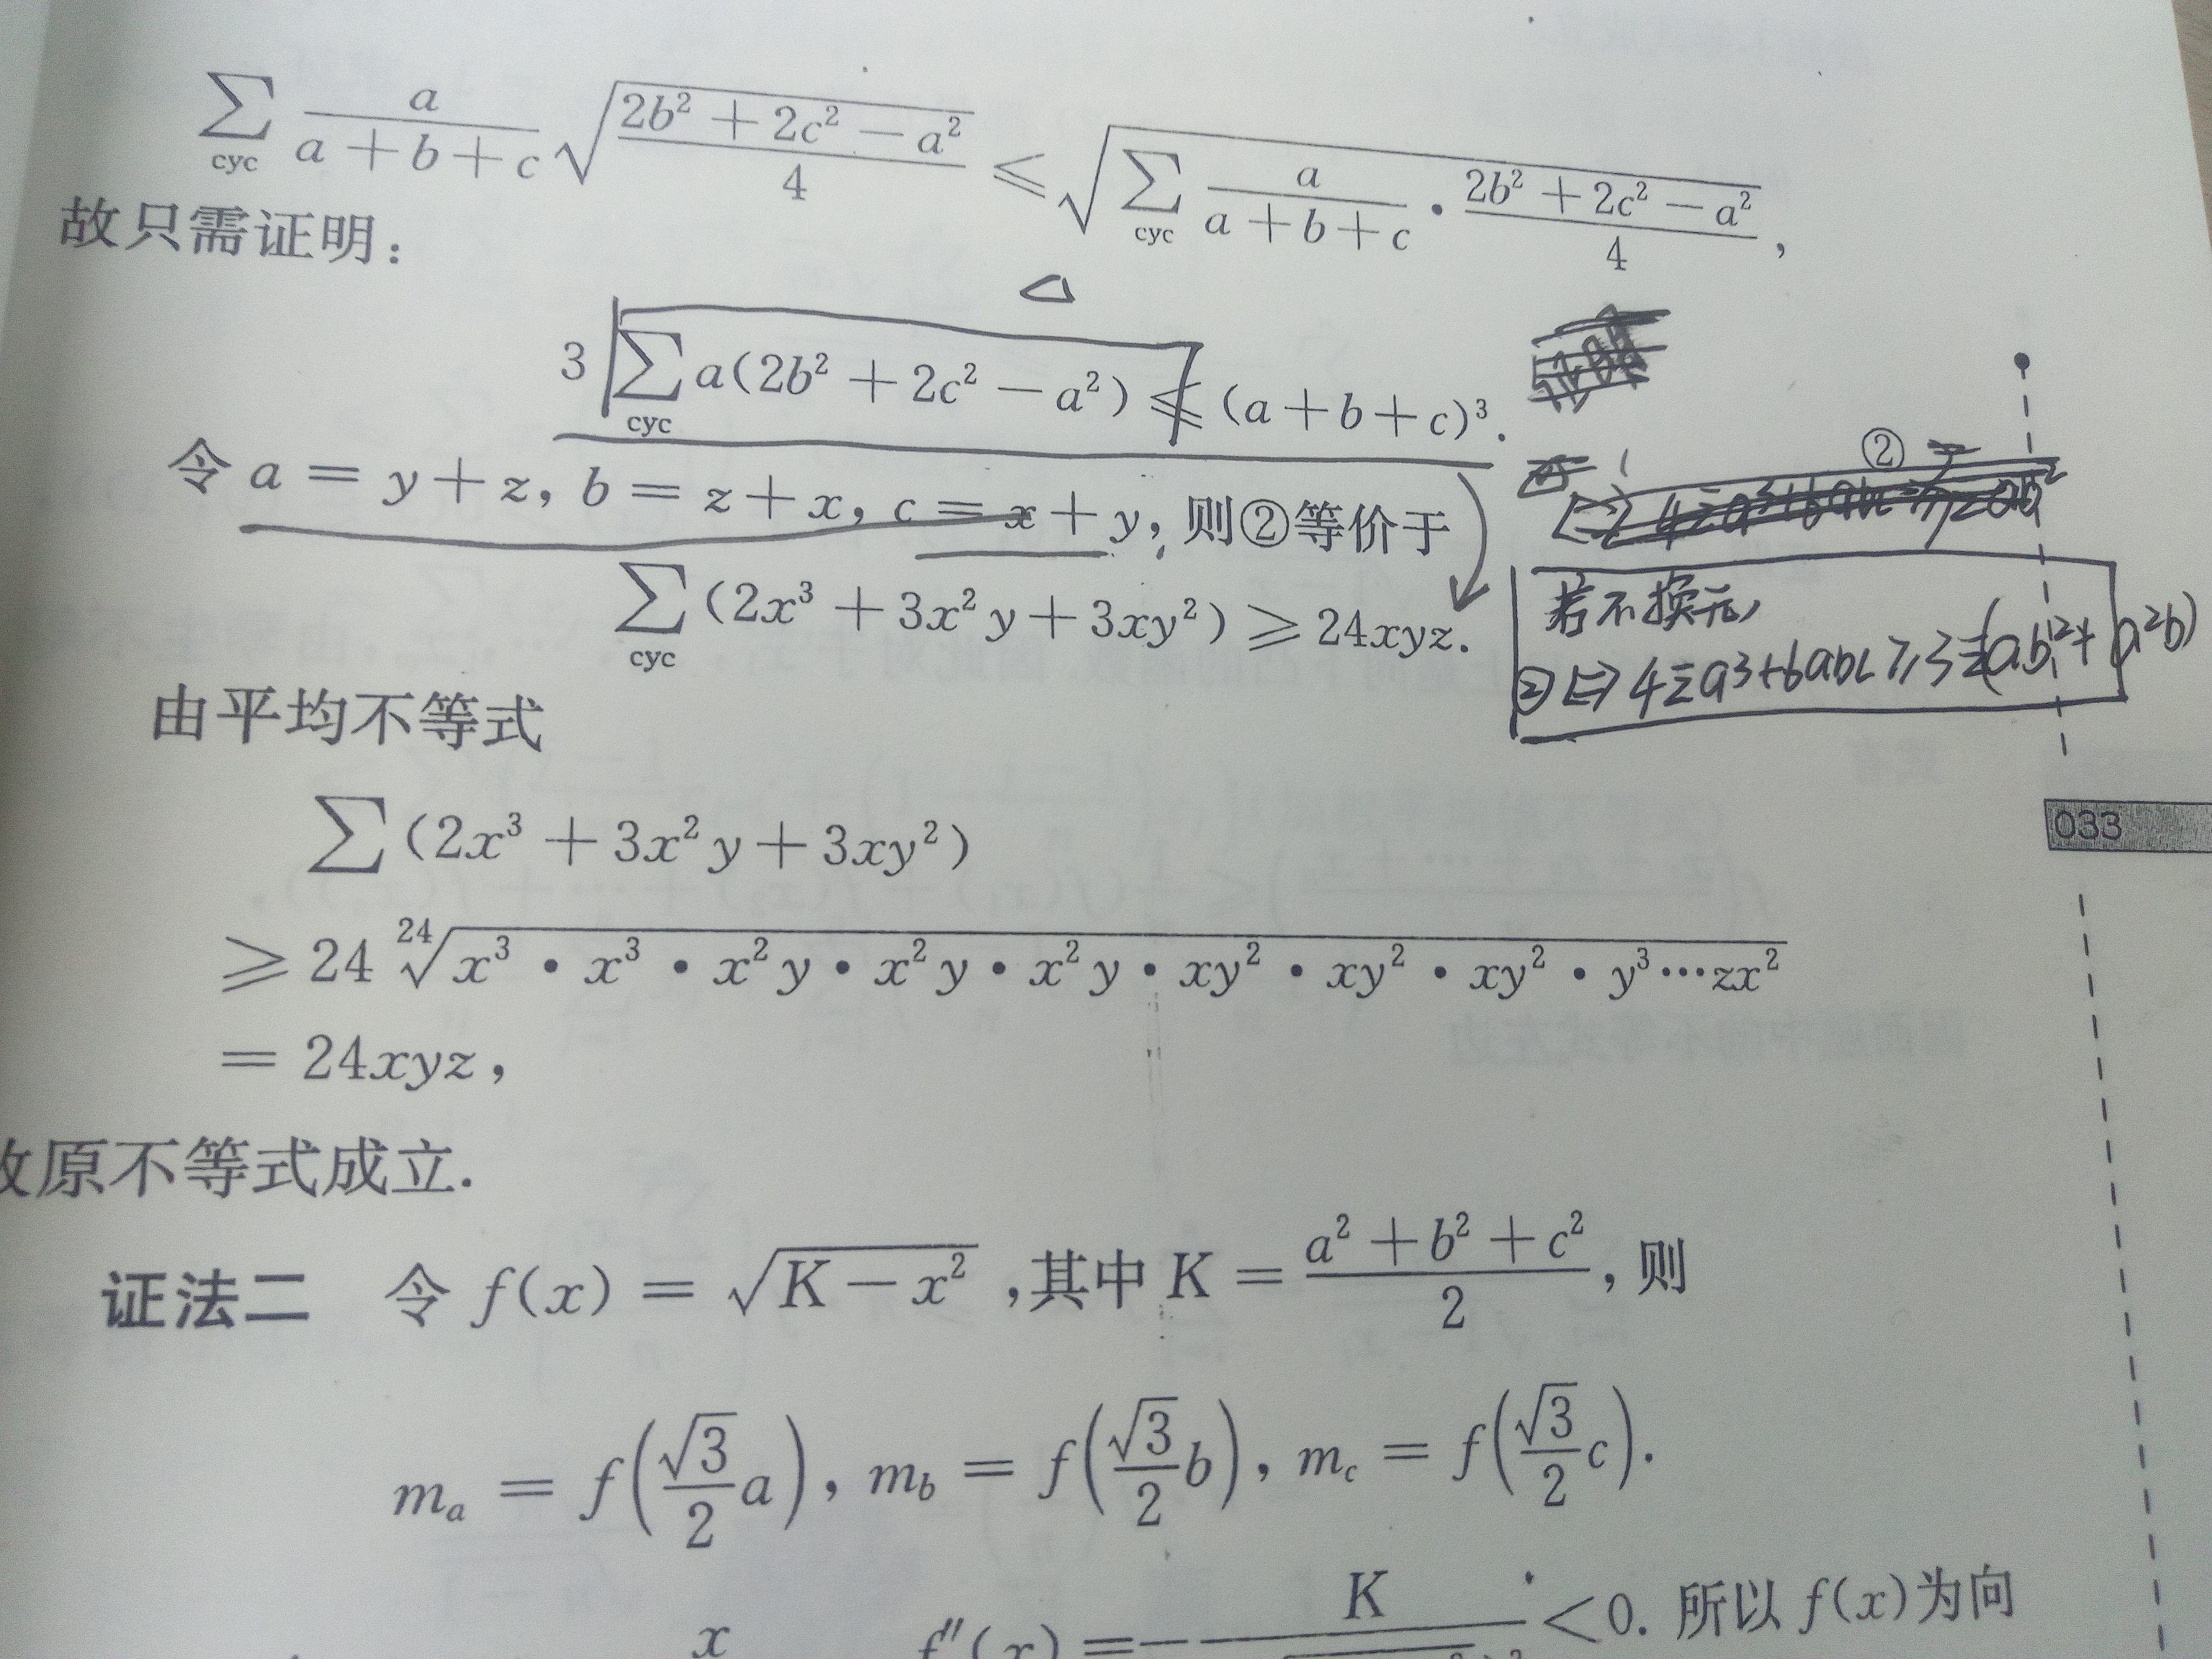 ∑cyc a/(a+b+c) √((2b²+2c²−a²)/4) ⩽ √(∑cyc a/(a+b+c) · (2b²+2c²−a²)/4),
故只需证明:
3∑cyc a(2b²+2c²−a²) ⩽ (a+b+c)³.
②
令 a = y+z, b = z+x, c = x+y, 则②等价于
∑cyc (2x³+3x²y+3xy²) ⩾ 24xyz.
若不换元,
② ⇔ 4∑a³+6abc ⩾ 3∑(ab²+a²b)
由平均不等式
∑(2x³+3x²y+3xy²)
033
⩾ 24 ²⁴√(x³·x³·x²y·x²y·x²y·xy²·xy²·xy²·y³···zx²)
= 24xyz,
故原不等式成立.
证法二 令 f(x) = √(K−x²), 其中 K = (a²+b²+c²)/2, 则
mₐ = f(√3/2 a), m_b = f(√3/2 b), m_c = f(√3/2 c).
x f″(x) = − K <0. 所以 f(x)为向